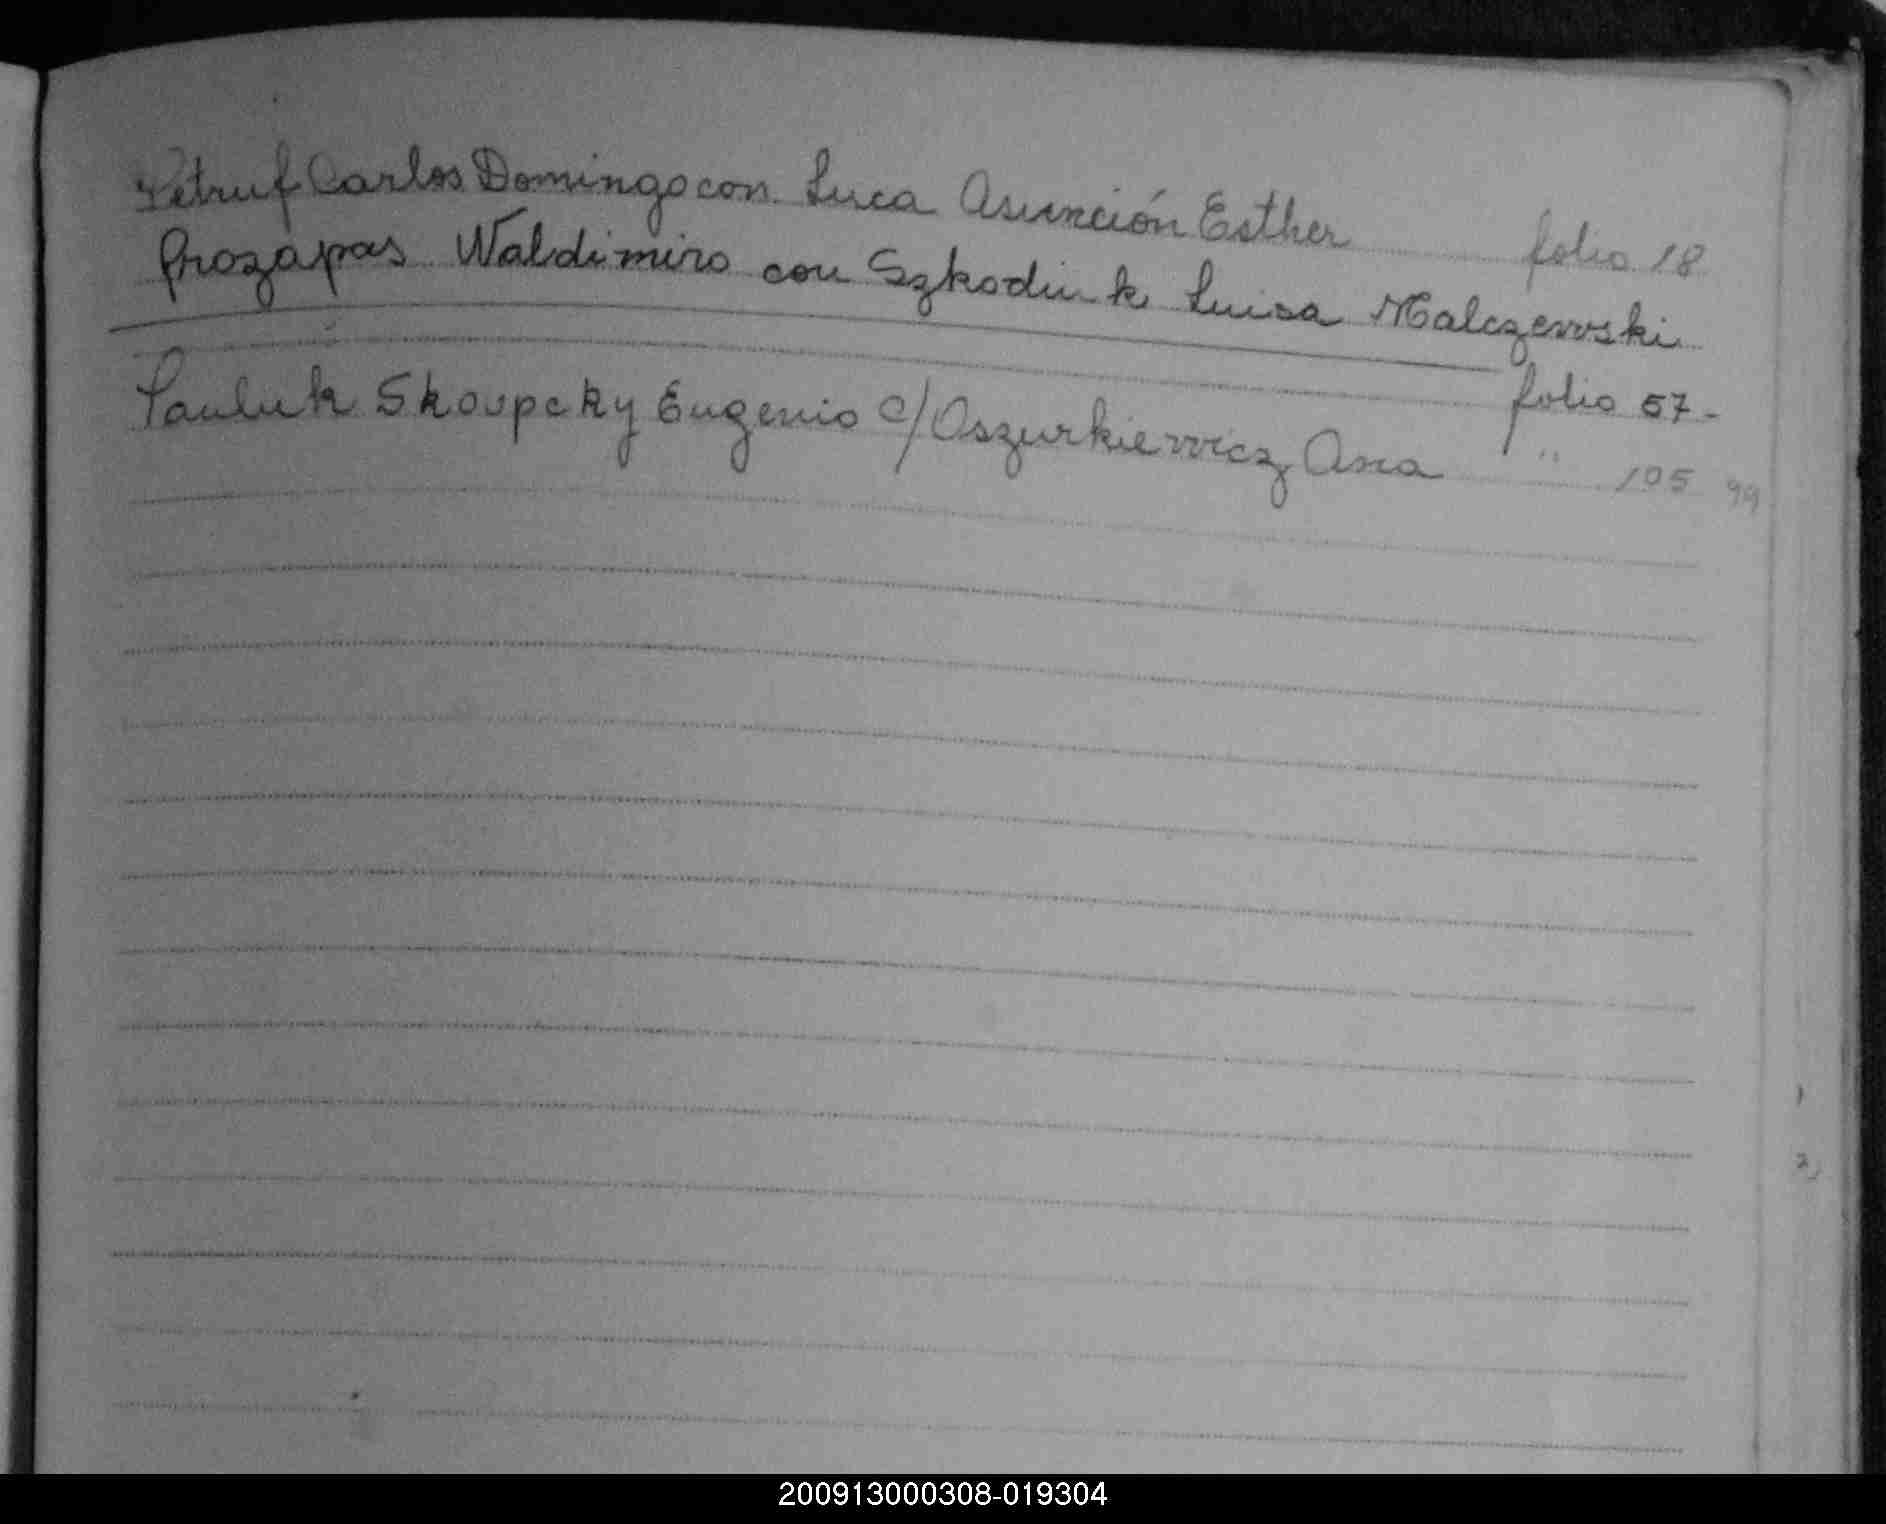 Petruf Carlos Domingo con Luca Asunción Esther folio 18
Prozapas Waldimiro con Szkodiuk Luisa Malczewski
folio 57-
Pauluk Skoupcky Eugenio c/ Oszurkiewicz Ana " 105 99
200913000308-019304